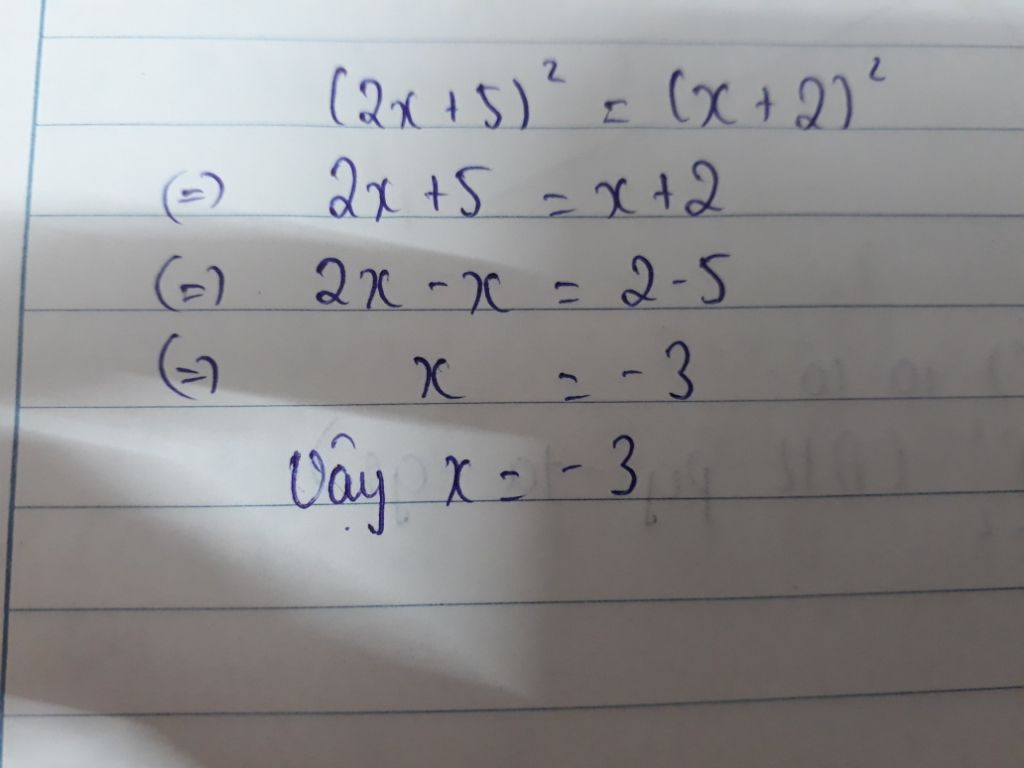 (2x+5)² = (x+2)²
(=) 2x+5 = x+2
(=) 2x-x = 2-5
(=) x = -3
Vậy x = -3